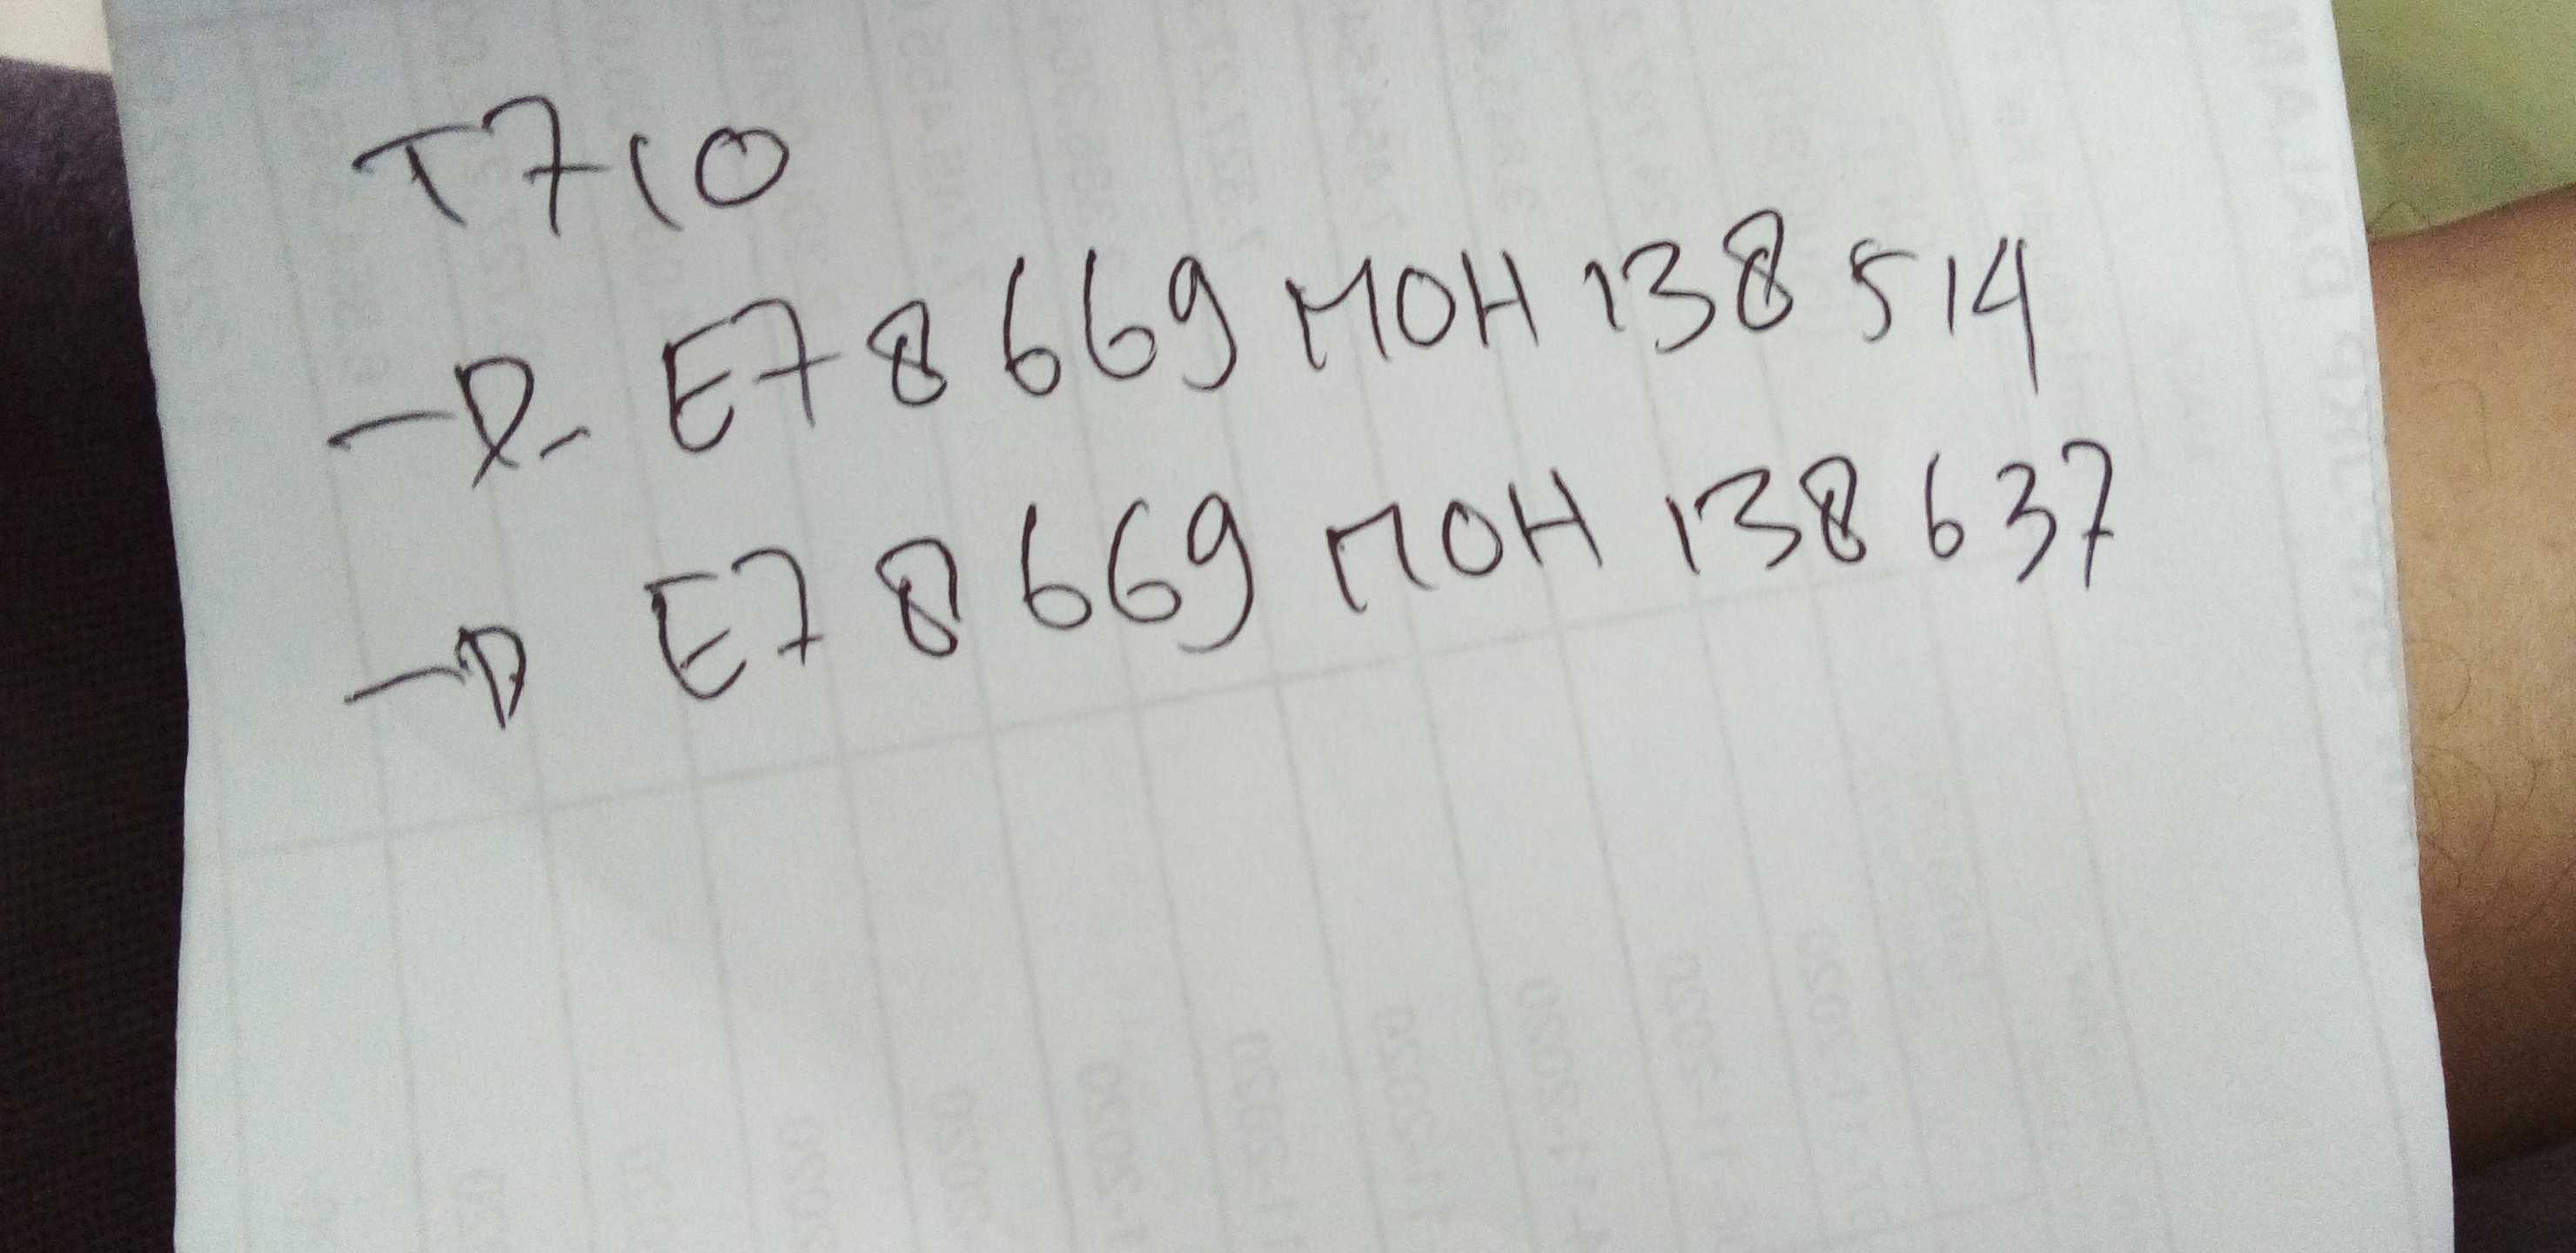 T710
→ E78669MOH138514
→ E78669MOH138637